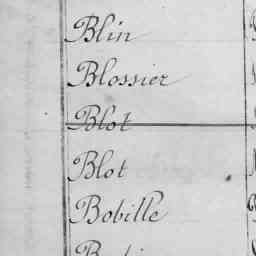 Blin
Blossier
Blot
Blot
Bobille